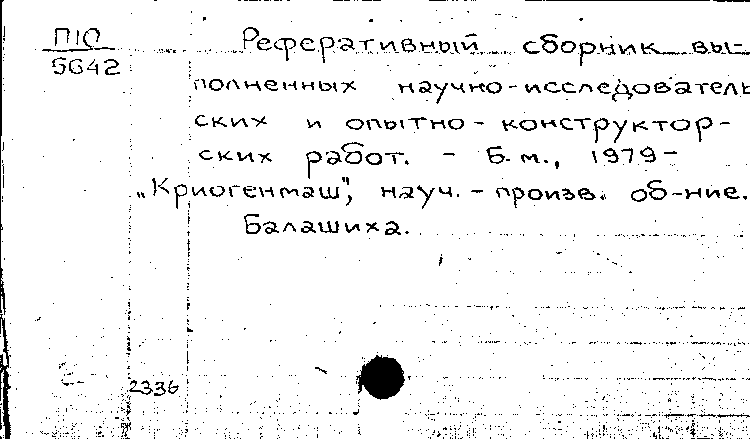 П10
5642
Реферативный сборник вы-
полненных научно-исследователь
ских и опытно-конструктор-
ских работ. - Б.м., 1979-
„Криогенмаш", науч.-произв. об-ние.
Балашиха.
2336